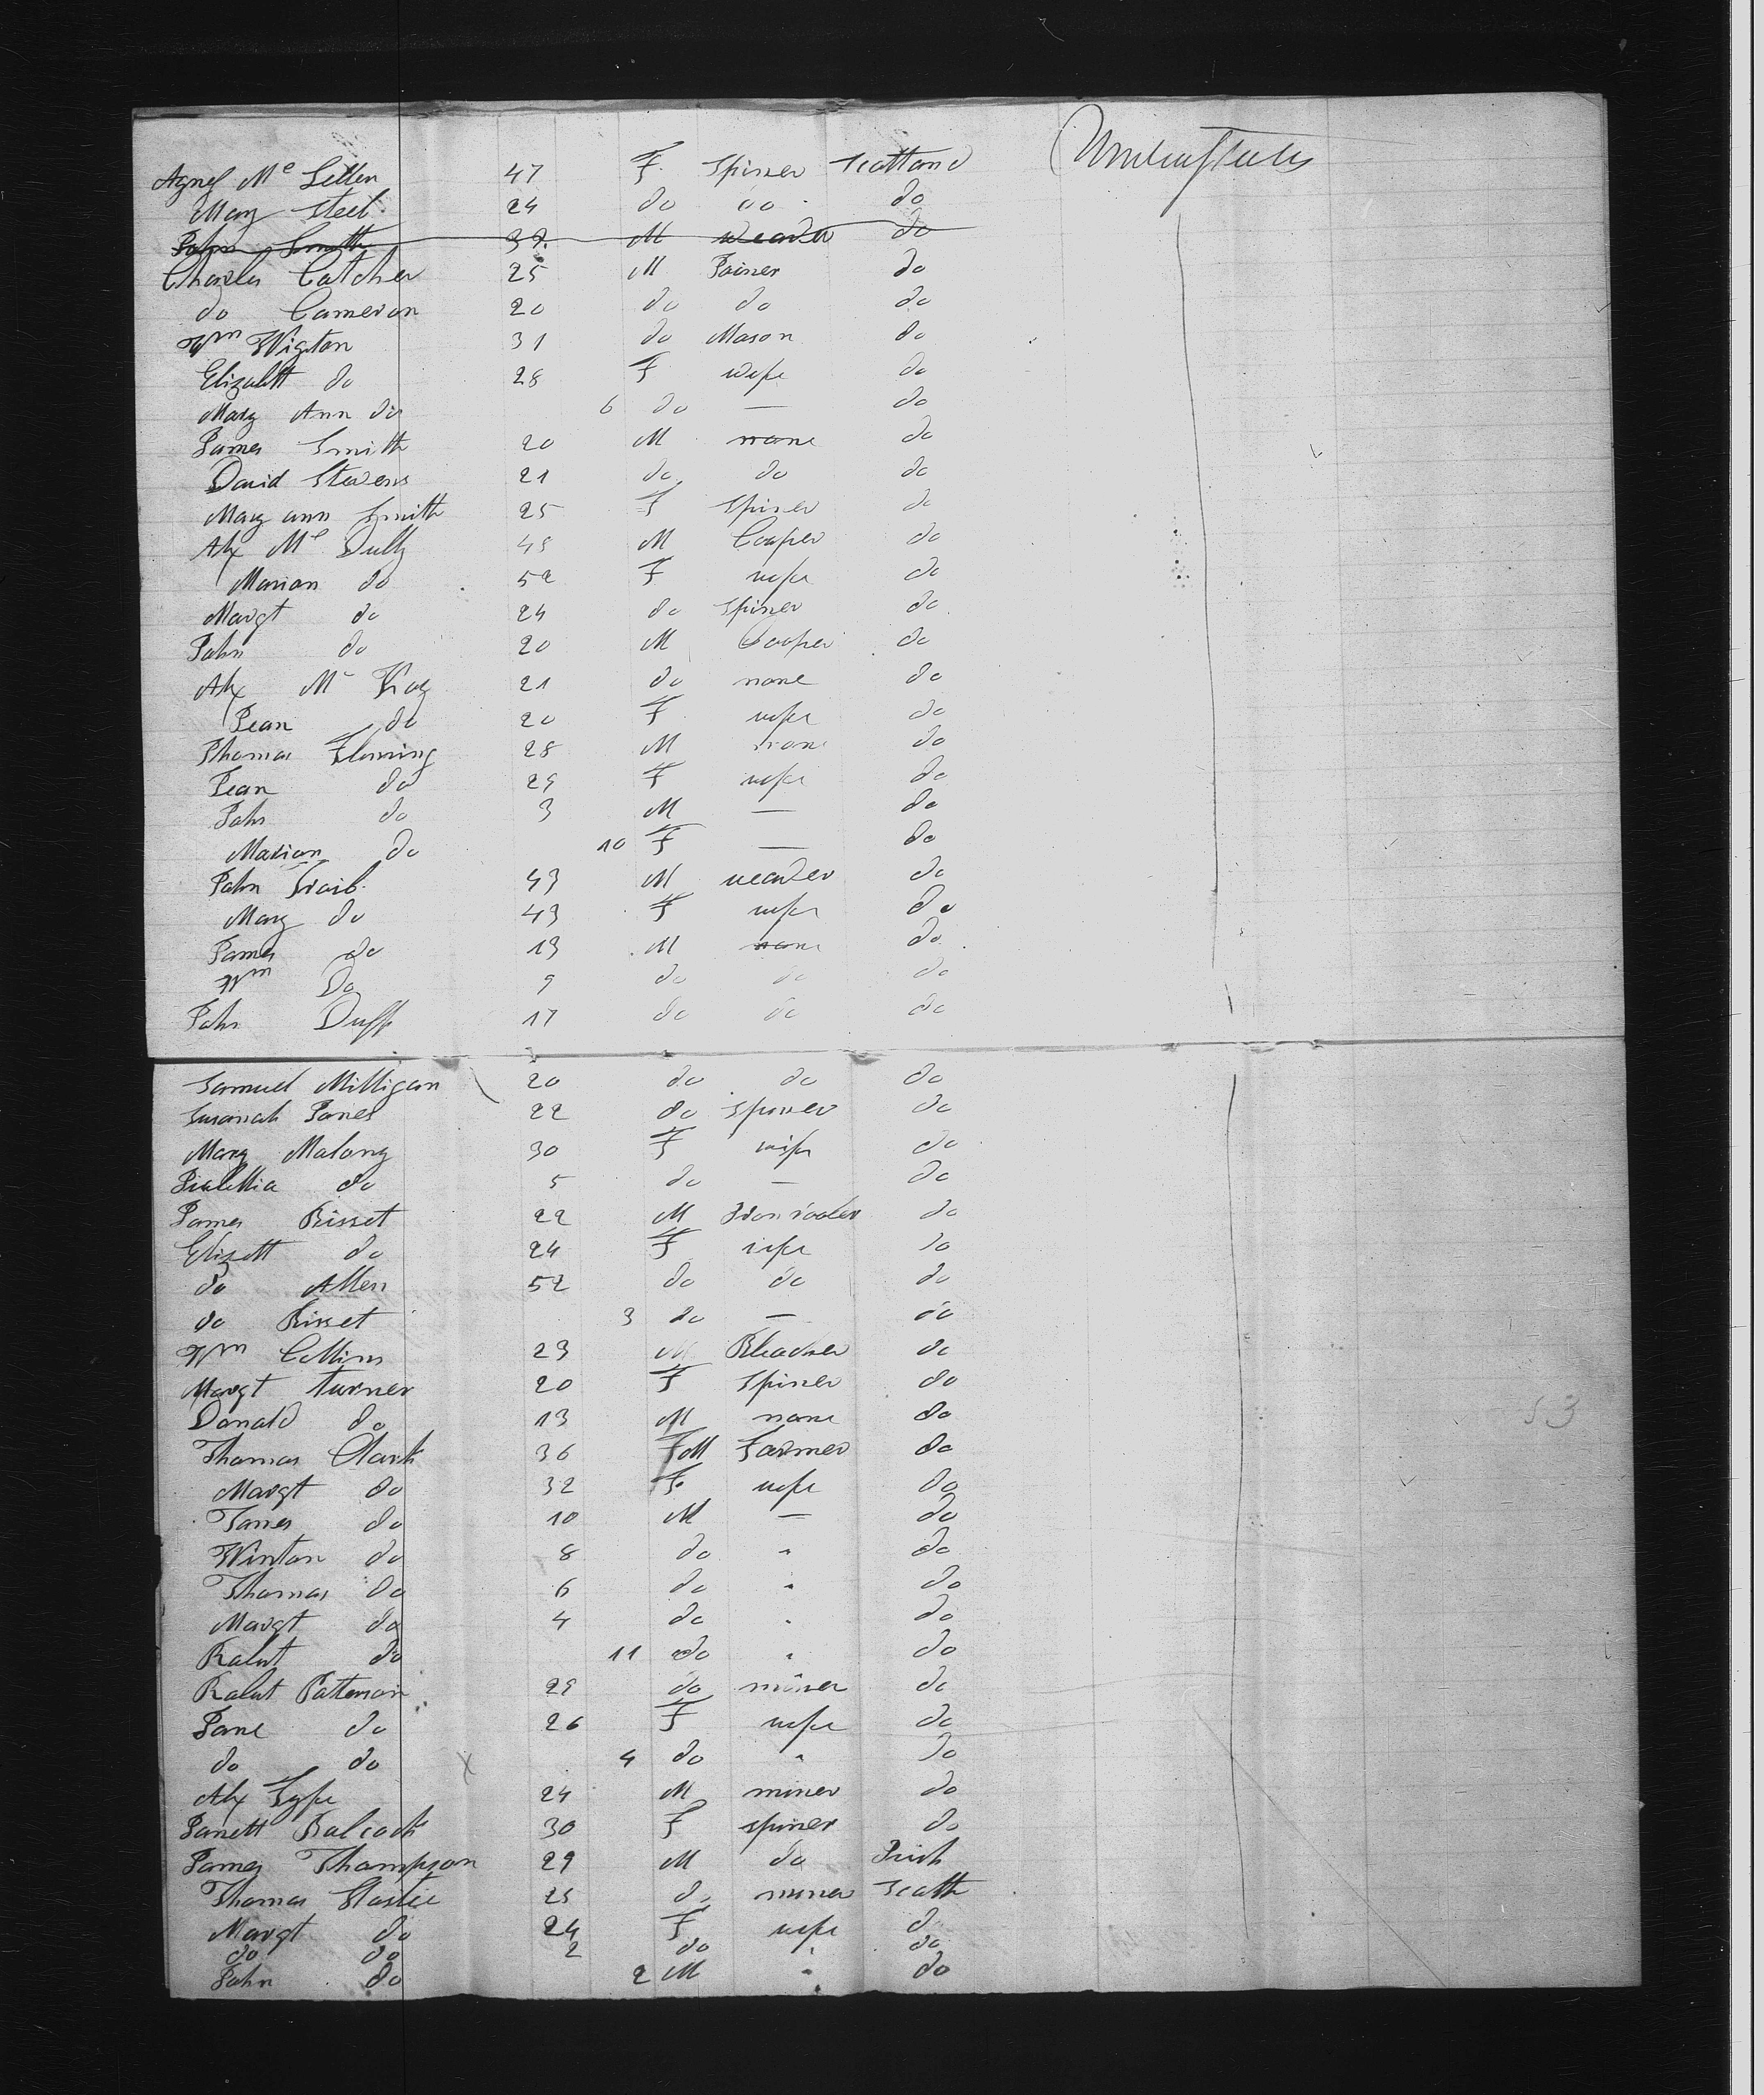 Agnes Mc Lellen 47 F. Spiner Scotland United States
Mary Steel 24 do do do
John Smith 37 M weaver do
Charles Catcher 25 M Joiner do
do Cameron 20 do do do
Wm Wigton 31 do Mason do
Elizabth do 28 F wife do
Mary Ann do 6 do — do
James Smith 20 M none do
David Stevens 21 do do do
Mary ann Smith 25 F Spiner do
Alx Mc Dully 45 M Couper do
Marian do 52 F wife do
Margt do 24 do Spiner do
John do 20 M Cooper do
Alx Mc Kay 21 do none do
Jean do 20 F wife do
Thomas Fleming 28 M none do
Jean do 29 F wife do
John do 3 M — do
Marion do 10 F — do
John 43 M weaver do
Mary do 43 F wife do
James do 13 M none do
Wm Do 9 do do do
John Duff 17 do do do
Samuel Milligan 20 do do do
Susanah Jones 22 do Spiner do
Mary Malony 30 F wife do
do 5 do — do
James Bisset 22 M do
Elizbtt do 24 F wife do
do Allen 52 do do do
do Bisset 3 do — do
Wm Collins 23 M Bleacher do
Margt turner 20 F Spiner do
Donald do 13 M none do
Thomas Clark 36 FM Farmer do
Margt do 32 F. wife do
James do 10 M — do
Winton do 8 do " do
Thomas do 6 do " do
Margt do 4 do " do
Robrt do 11 do " do
Robrt Patterson 29 do miner do
Jane do 26 F wife do
do do 4 do " do
Alx Syfe 24 M miner do
Janett Balcock 30 F spiner do
James Thompson 29 M do Irish
53
Thomas 25 do miner Scotth
Margt do 24 F wife do
do do 2 do " do
John do 2 M " do